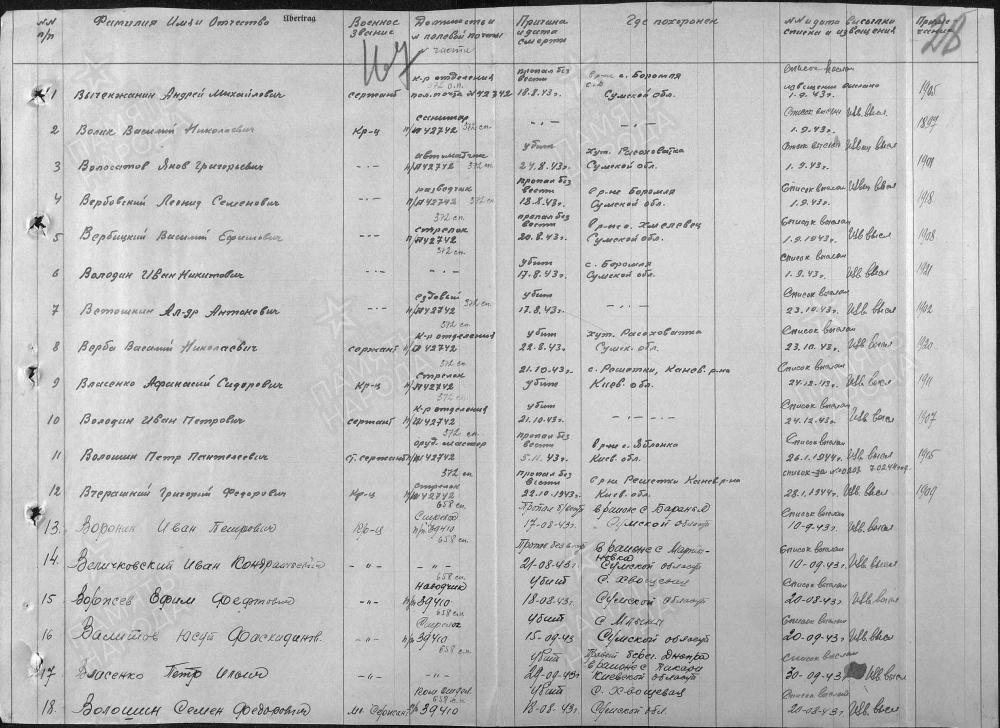 NN п/п Фамилия Имя Отчество Übertrag Военное Звание Должность и N полевой почты части Причина и дата смерти Где похоронен NN и дата высылки списка и извещения Приме-чание
28
1 Выченжанин Андрей Михайлович сержант к-р отделения 572 сп. пол. почта N 42742 пропал без вести 18.8.43г. в р-не с. Боромля Сумской обл. Список выслан извещение выслано 1.9.43г. 1905
2 Волик Василий Николаевич Кр-ц санитар п/п 42742 572 сп. -„- -„- Список выслан Изв. высл 1.9.43г. 1897
3 Волосатов Яков Григорьевич -„- автоматчик п/п 42742 572 сп. убит 24.8.43г. хут. Расоховатка Сумской обл. Список выслан Изв. высл 1.9.43г. 1901
4 Вербовский Леонид Семенович -„- разведчик п/п 42742 572 сп. пропал без вести 18.8.43г. в р-не Боромля Сумской обл. Список выслан Изв. высл 1.9.43г. 1918
5 Вербицкий Василий Ефимович -„- 572 сп. стрелок п/п 42742 пропал без вести 20.8.43г. в р-не с. Хмелевец Сумской обл. Список выслан 1.9.1943г. Изв. высл 1908
6 Володин Иван Никитович -„- 572 сп. -„- убит 17.8.43г. с. Боромля Сумской обл. Список выслан 1.9.43г. Изв. высл 1921
7 Ветошкин Ал-др Антонович -„- ездовый 572 сп. п/п 42742 убит 17.8.43г. -„- Список выслан 23.10.43г. Изв высл 1902
8 Верба Василий Николаевич сержант 572 сп. к-р отделения п/п 42742 убит 22.8.43г. хут. Расоховатка Сумск. обл. Список выслан 23.10.43г. Изв. высл 1920
9 Власенко Афанасий Сидорович Кр-ц 572 сп. стрелок п/п 42742 21.10.43г. убит с. Решетки, Канев. р-на Киев. обл. Список выслан 24.12.43г. Изв. высл 1911
10 Володин Иван Петрович сержант 572 сп. к-р отделения п/п 42742 убит 21.10.43г. -„- Список выслан 24.12.43г. Изв. высл 1907
11 Волошин Петр Пантелеевич ст. сержант 572 сп. оруд. мастер п/п 42742 пропал без вести 5.11.43г. в р-не с. Яблонка Киев. обл. Список выслан 26.1.1944г. Изв. высл 1915
12 Втерашкий Григорий Федорович Кр-ц 572 сп. стрелок п/п 42742 пропал без вести 22.10.1943г. в р-не Решетки Канев р-на Киев. обл. 28.1.1944г. Изв. высл 1909
13. Воронин Иван Петрович Кр-ц 658 сп. п/п 39410 17-08-43г. в районе с Сумской область Список выслан 10-9-43г. Изв. высл
14. Величковский Иван -„- -„- Пропал без вести 21-08-43г. в районе с Сумской область Список выслан 10-09-43г. Изв высл
15 Ефим -„- 658 сп. Наводчик п/п 39410 Убит 18-08-43г. Сумской область Список выслан 20-08-43г. Изв высл
16 Юсуп -„- 658 сп. п/п 39410 Убит 15-09-43 Сумской область Список выслан 20-09-43г. Изв высл
17 Власенко Петр -„- 658 сп. -„- Убит 29-09-43г. берег. Днепра в районе с Киевской область Список выслан 30-09-43г. Изв высл
18. Волошин Семен Федорович мл. Сержант 658 сп. п/п 39410 Убит 18-08-43г. Сумской обл. Список выслан 20-08-43г. Изв высл